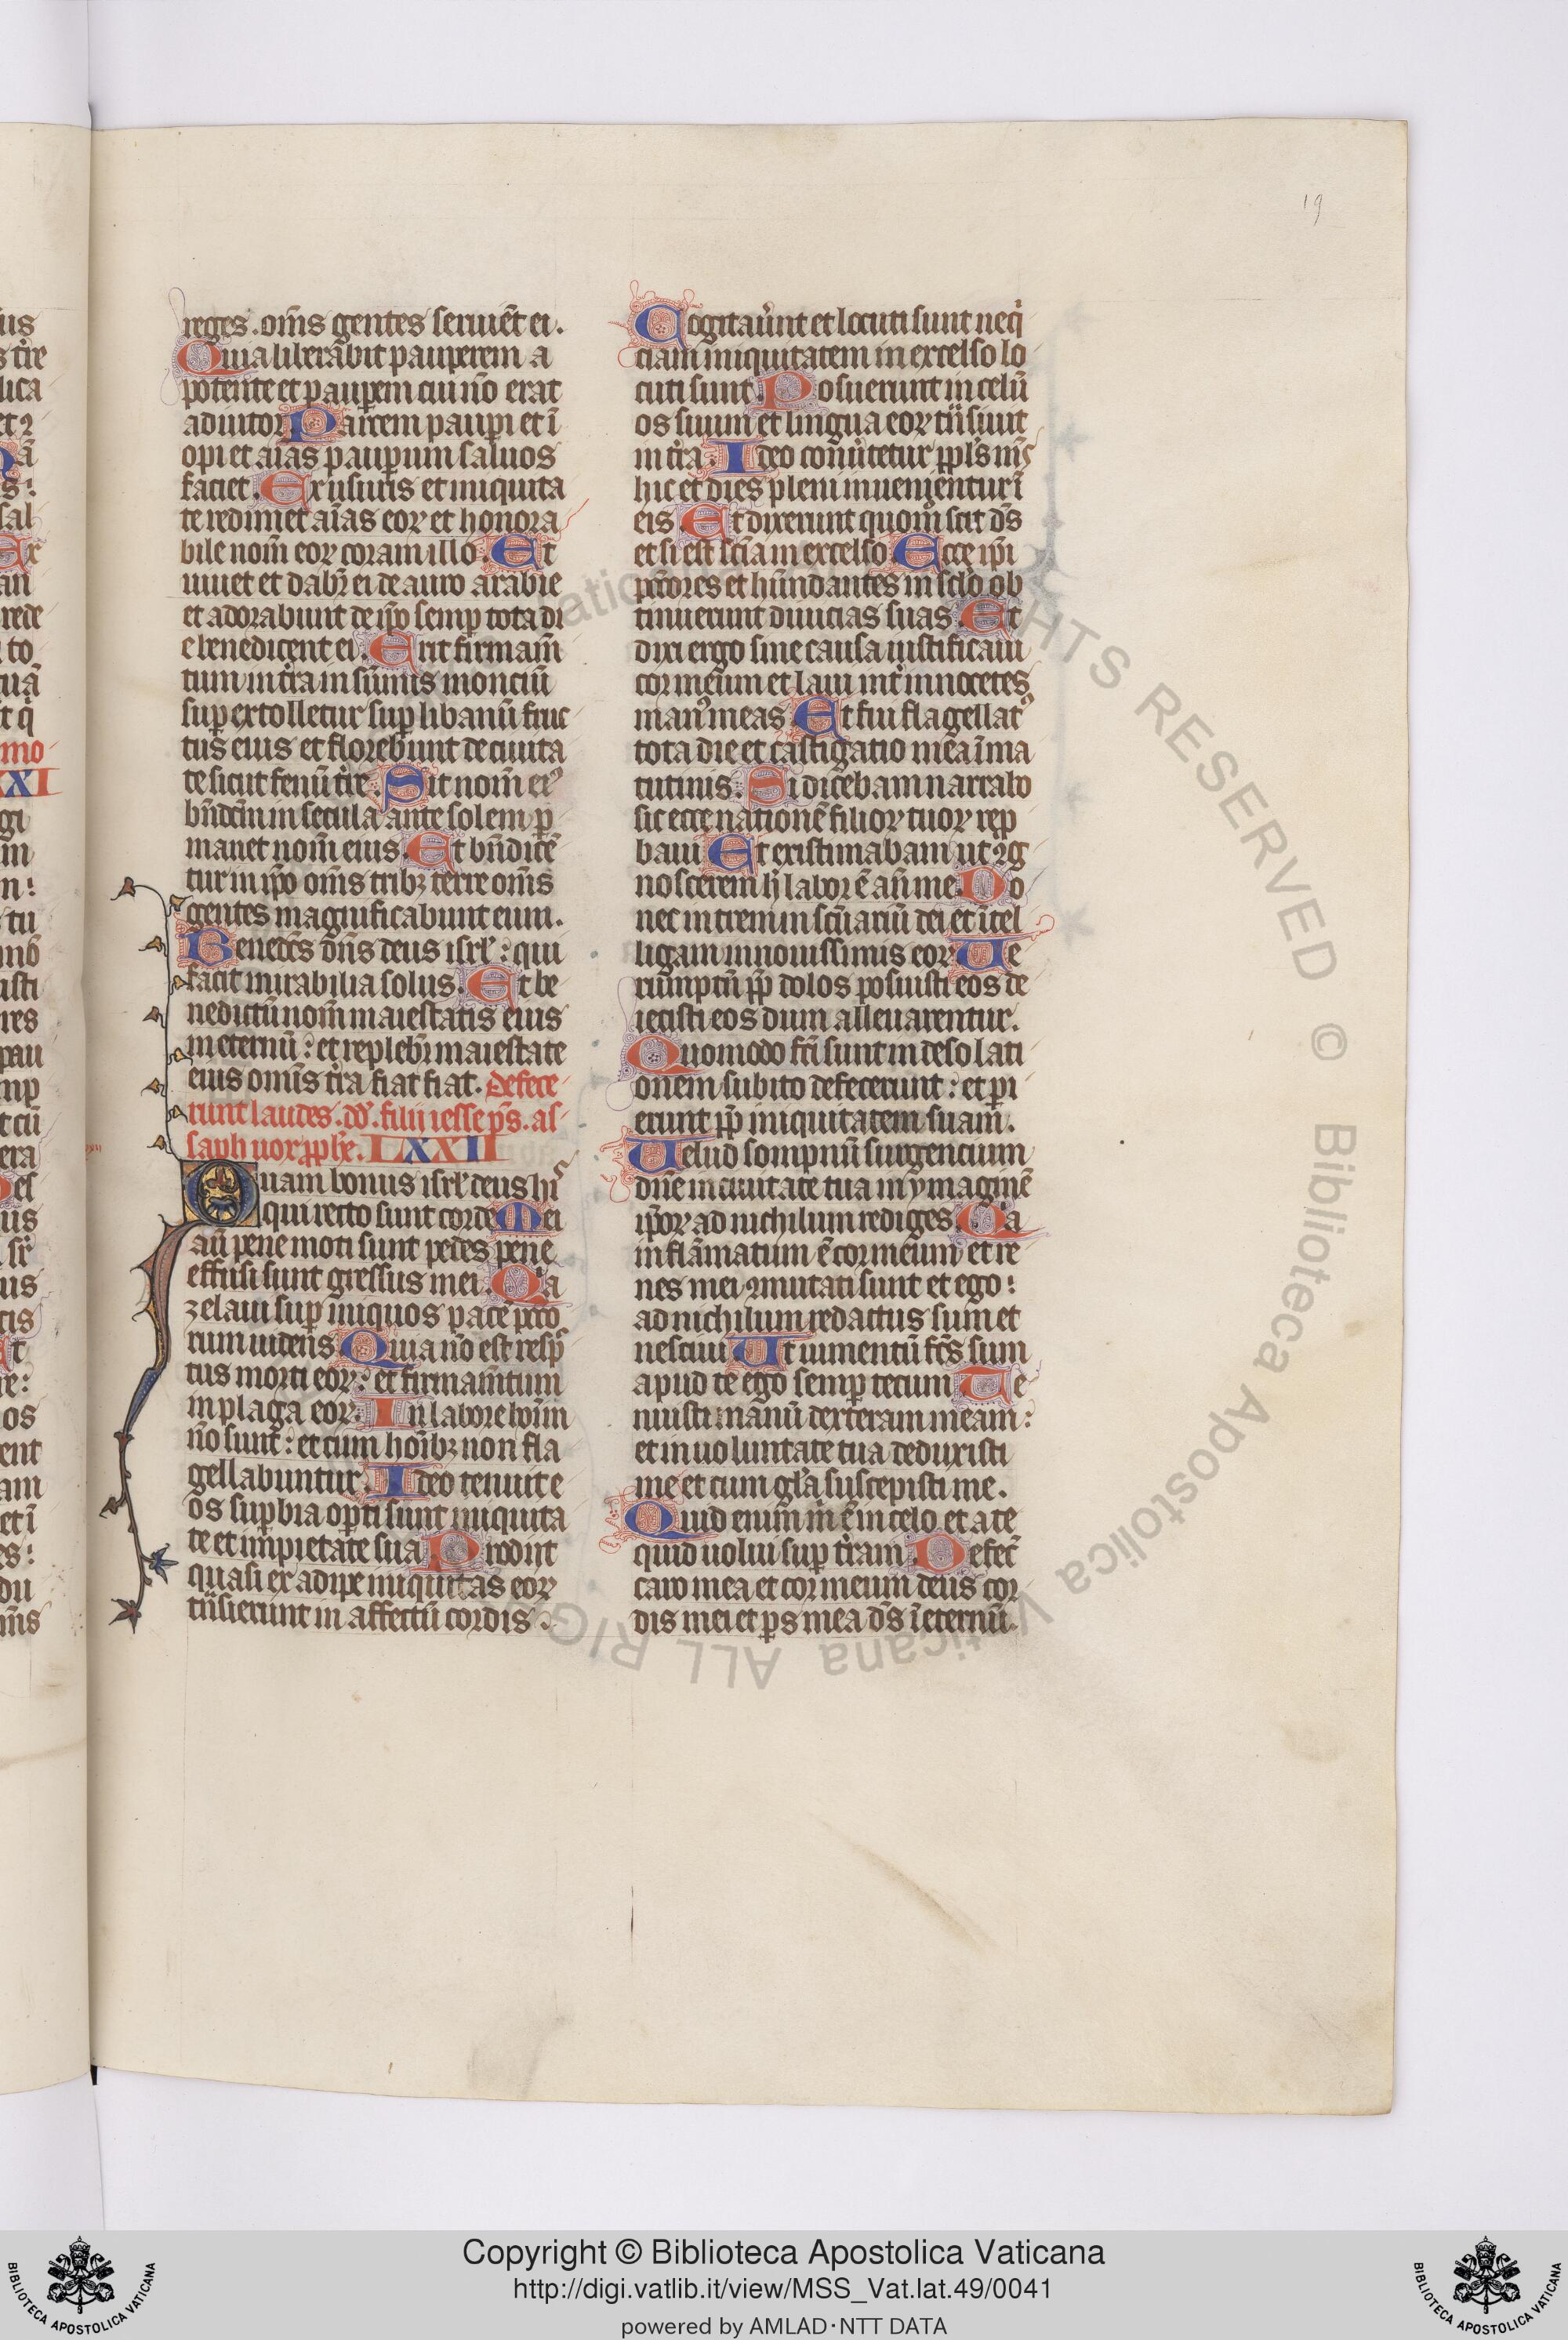 19
reges. om̄s gentes seruiēt ei.
Quia liberabit pauperem a
potente et pauꝑem cui nō erat
adiutor Parcet pauꝑi et ī
opi et aīas pauꝑum saluos
faciet. Ex usuris et iniquita
te redimet aīas eoꝝ et honora
bile nom̄ eoꝝ coram illo. Et
uiuet et dabit̉ ei de auro arabie
et adorabunt de ip̄o semꝑ tota di
e benedicent ei. Erit firmam̄
tum in t̉ra in sūmis monciū
suꝑextolletur suꝑ libanū fruc
tus eius et florebunt de ciuita
te sicut fenū t̉re. Sit nom̄ eiꝰ
bn̄dc̄m in secula ante solem ꝑ
manet nom̄ eius. Et bn̄dicē
tur in ip̄o om̄s tribꝫ terre om̄s
gentes magnificabunt eum.
Benedc̄s dn̄s deus isrl̄ : qui
facit mirabilia solus. Et be
nedictū nom̄ maiestatis eius
in eternū : et replebit̉ maiestate
eius omīs t̉ra fiat fiat. Defece
runt laudes. dd̄. filij iesse p̄s. as
saph uox ꝓph̄e. LXXII
Quam bonus isrl̄ deus hijs
qui recto sunt corde Mei
aū pene moti sunt pedes pene
effusi sunt gressus mei. Qa
zelaui suꝑ iniquos pacē pc̄co
rum uidens Quia nō est resp̄
tus morti eoꝝ : et firmam̄tum
in plaga eoꝝ. In labore hoīm
nō sunt : et cum hoībꝫ non fla
gellabuntur. Ideo tenuit e
os suꝑbia oꝑti sunt iniquita
te et impietate sua Prodijt
quasi ex adipe iniquitas eoꝝ
tn̄sierunt in affectū cordis.
Cogitauer̄nt et locuti sunt neq̄
ciam iniquitatem in excelso lo
cuti sunt. Posuerunt in celū
os suum et lingua eoꝝ tn̄siuit
in t̉ra. Ideo conūtetur ꝑpl̄s mꝰ
hic et dies pleni inuenientur ī
eis. Et dixerunt quom̊ scit dꝰs
et si est sc̄ia in excelso Ecce ip̄i
pc̄cores et hn̄dantes in sclo̅ ob
tinuerunt diuicias suas. Et
dixi ergo sine causa iustificaui
cor meum et laui int̉ innocētes
manꝰ meas Et fui flagellatꝰ
tota die et castigatio mea ī ma
tutinis. Si dicebam narrabo
sic ecce nationē filioꝝ tuoꝝ rep
baui Et existimabam ut ꝯg
noscerem h̄ labor ē an̄ me. Do
nec intrem in scūariū dei et ītel
ligam in nouissimis eoꝝ Ue
rumptn̄ ꝓp̄ dolos posuisti eos de
iecisti eos dum alleuarentur.
Quomodo fc̄i sunt in desolati
onem subito defecerunt : et ꝑi
erunt ꝓp̄ iniquitatem suam.
Uelud sompnū surgencium
dn̄e in ciuitate tua in ymaginē
ip̄oꝝ ad nichilum rediges. Qa
inflāmatum ē cor meum et re
nes mei ꝯmutati sunt et ego :
ad nichilum redactus sum et
nesciui Ut iumentū fc̄s sum
apud te ego semꝑ tecum Te
nuisti manū dexteram meam :
et in uoluntate tua deduxisti
me et cum gl̄a suscepisti me.
Quid enim m̄ ē in celo. et a te
quid uolui suꝑ t̉ram Defec̄
caro mea et cor meum deus cor
dis mei et ꝑs mea dꝰs ī eternū.
Copyright © Biblioteca Apostolica Vaticana
http://digi.vatlib.it/view/MSS_Vat.lat.49/0041
powered by AMLAD·NTT DATA